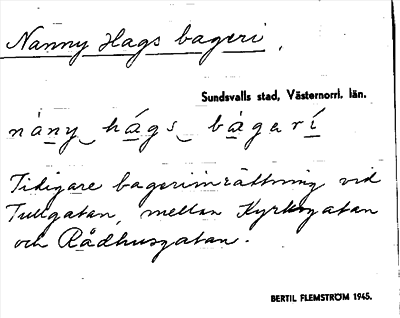 Nanny Hags bageri.
Sundsvalls stad, Västernorrl. län.
nàny hágs bàgarí
Tidigare bageriinrättning vid
Tullgatan, mellan Kyrkogatan
och Rådhusgatan.
BERTIL FLEMSTRÖM 1945.